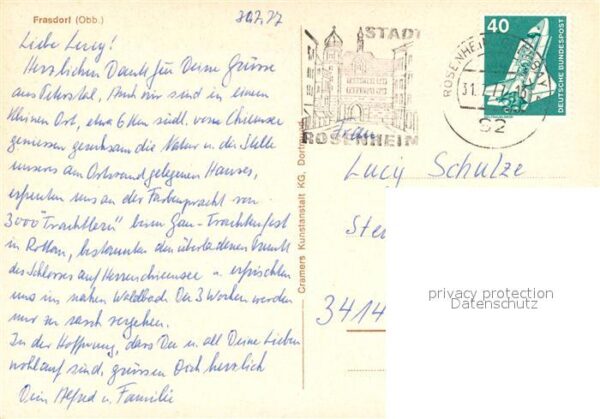 Frasdorf (Obb.)
30.7.77
Liebe Lucy!
Herzlichen Dank für Deine Grüsse
aus Auch wir sind in einem
kleinen Ort, etwa 6 Km südl. vom Chiemsee
geniessen geruhsam die Natur u. die Stille
unseres am Ortsrand gelegenen Hauses,
erfreuten uns an der Farbenpracht von
3000 "Trachtlern" beim Gau-Trachtenfest
in Rottau, bestaunten den überladenen Prunk
des Schlosses auf Herrenchiemsee u. erfrischten
uns im nahen Waldbad. Die 3 Wochen werden
nur zu rasch vergehen.
In der Hoffnung, dass Du u. all Deine Lieben
wohlauf sind, grüssen Dich herzlich
Dein Alfred u. Familie
Cramers Kunstanstalt KG, Dortm
STADT
ROSENHEIM
ROSENHEIM
31.7.77
82
40
DEUTSCHE BUNDESPOST
Frau
Lucy Schulze
3414
privacy protection
Datenschutz